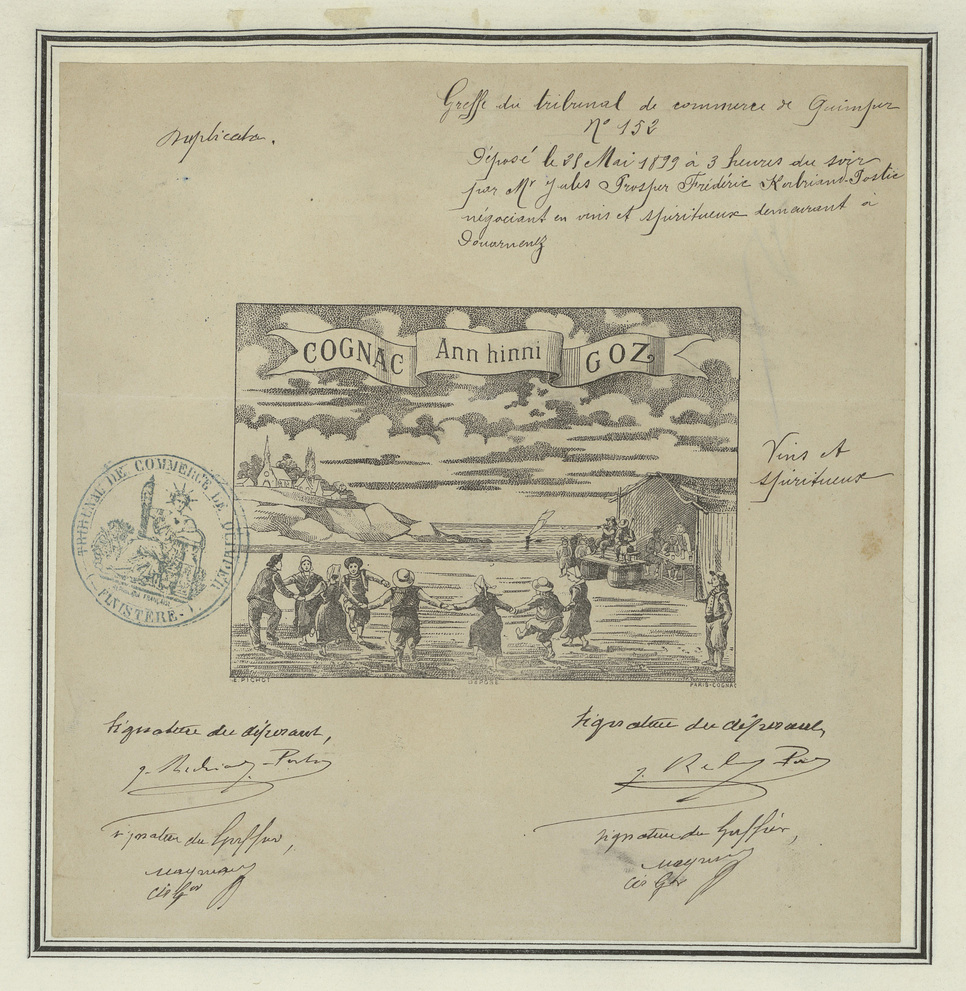 Greffe du tribunal de commerce de Quimper
Duplicata.
N° 152
Déposé le 28 Mai 1899 à 3 heures du soir
par Mr Jules Prosper Frédéric
négociant en vins et spiritueux demeurant à
Douarnenez
COGNAC Ann hinni GOZ
Vins et
spiritueux
TRIBUNAL DE COMMERCE DE QUIMPER
FINISTÈRE
E. PICHOT
DÉPOSÉ
PARIS-COGNAC
Signature du déposant,
Signature du déposant,
Signature du Greffier,
Signature du Greffier,